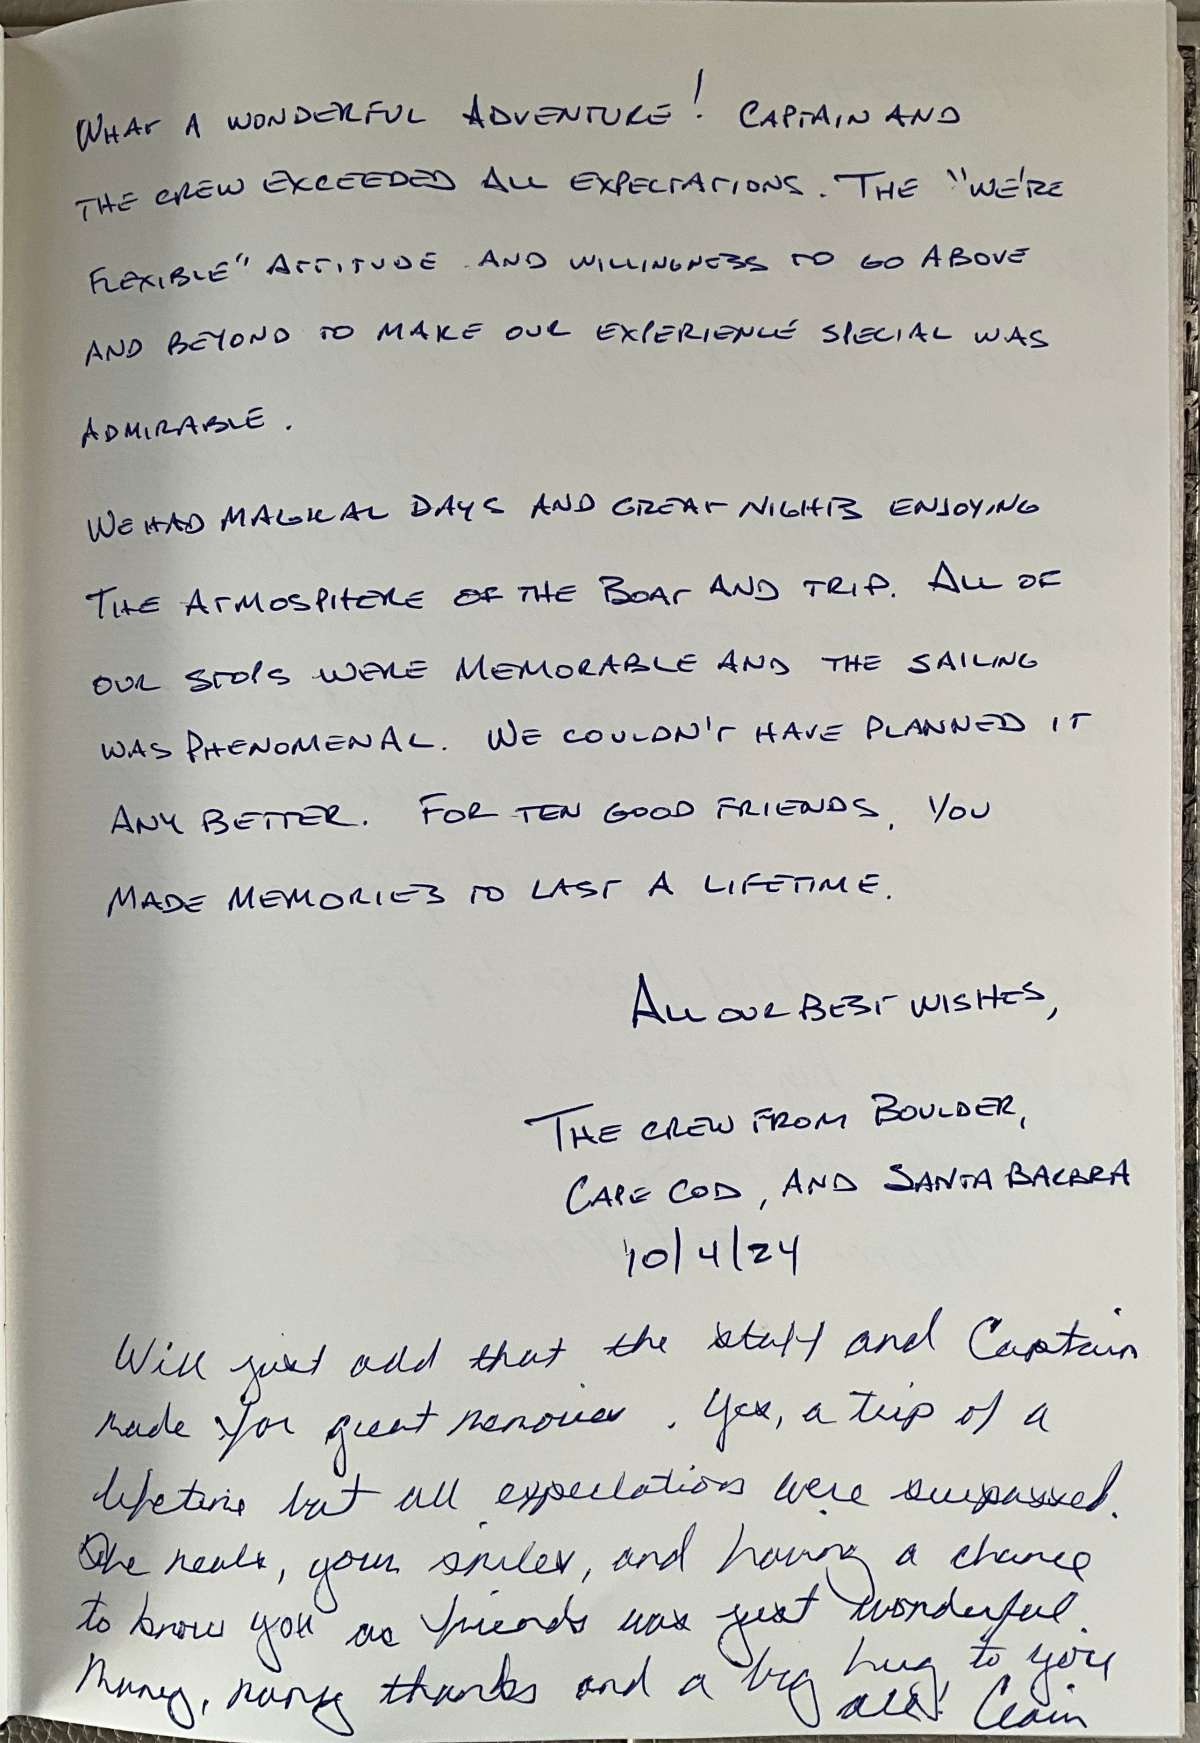 WHAT A WONDERFUL ADVENTURE! CAPTAIN AND
THE CREW EXCEEDED ALL EXPECTATIONS. THE "WE'RE
FLEXIBLE" ATTITUDE AND WILLINGNESS TO GO ABOVE
AND BEYOND TO MAKE OUR EXPERIENCE SPECIAL WAS
ADMIRABLE.
WE HAD MAGICAL DAYS AND GREAT NIGHTS ENJOYING
THE ATMOSPHERE OF THE BOAT AND TRIP. ALL OF
OUR STOPS WERE MEMORABLE AND THE SAILING
WAS PHENOMENAL. WE COULDN'T HAVE PLANNED IT
ANY BETTER. FOR TEN GOOD FRIENDS, YOU
MADE MEMORIES TO LAST A LIFETIME.
ALL OUR BEST WISHES,
THE CREW FROM BOULDER,
CAPE COD, AND SANTA BARBARA
10/4/24
Will just add that the staff and Captain
made for great memories. Yes, a trip of a
lifetime but all expectations were surpassed.
The meals, your smiles, and having a chance
to know you as friends was just wonderful.
Many, many thanks and a big hug to you
all!